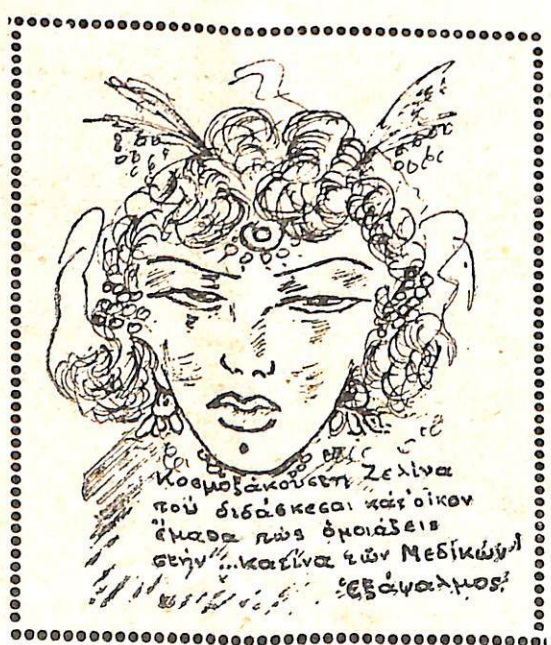 Κοσμοξάκουστη Ζελίνα
ποὺ διδάσκεσαι κάτ' οἶκον
ἔμαθα πῶς ὁμοιάζεις
στὴν "...κατίνα τῶν Μεδίκων"!
Ἑξάψαλμος!